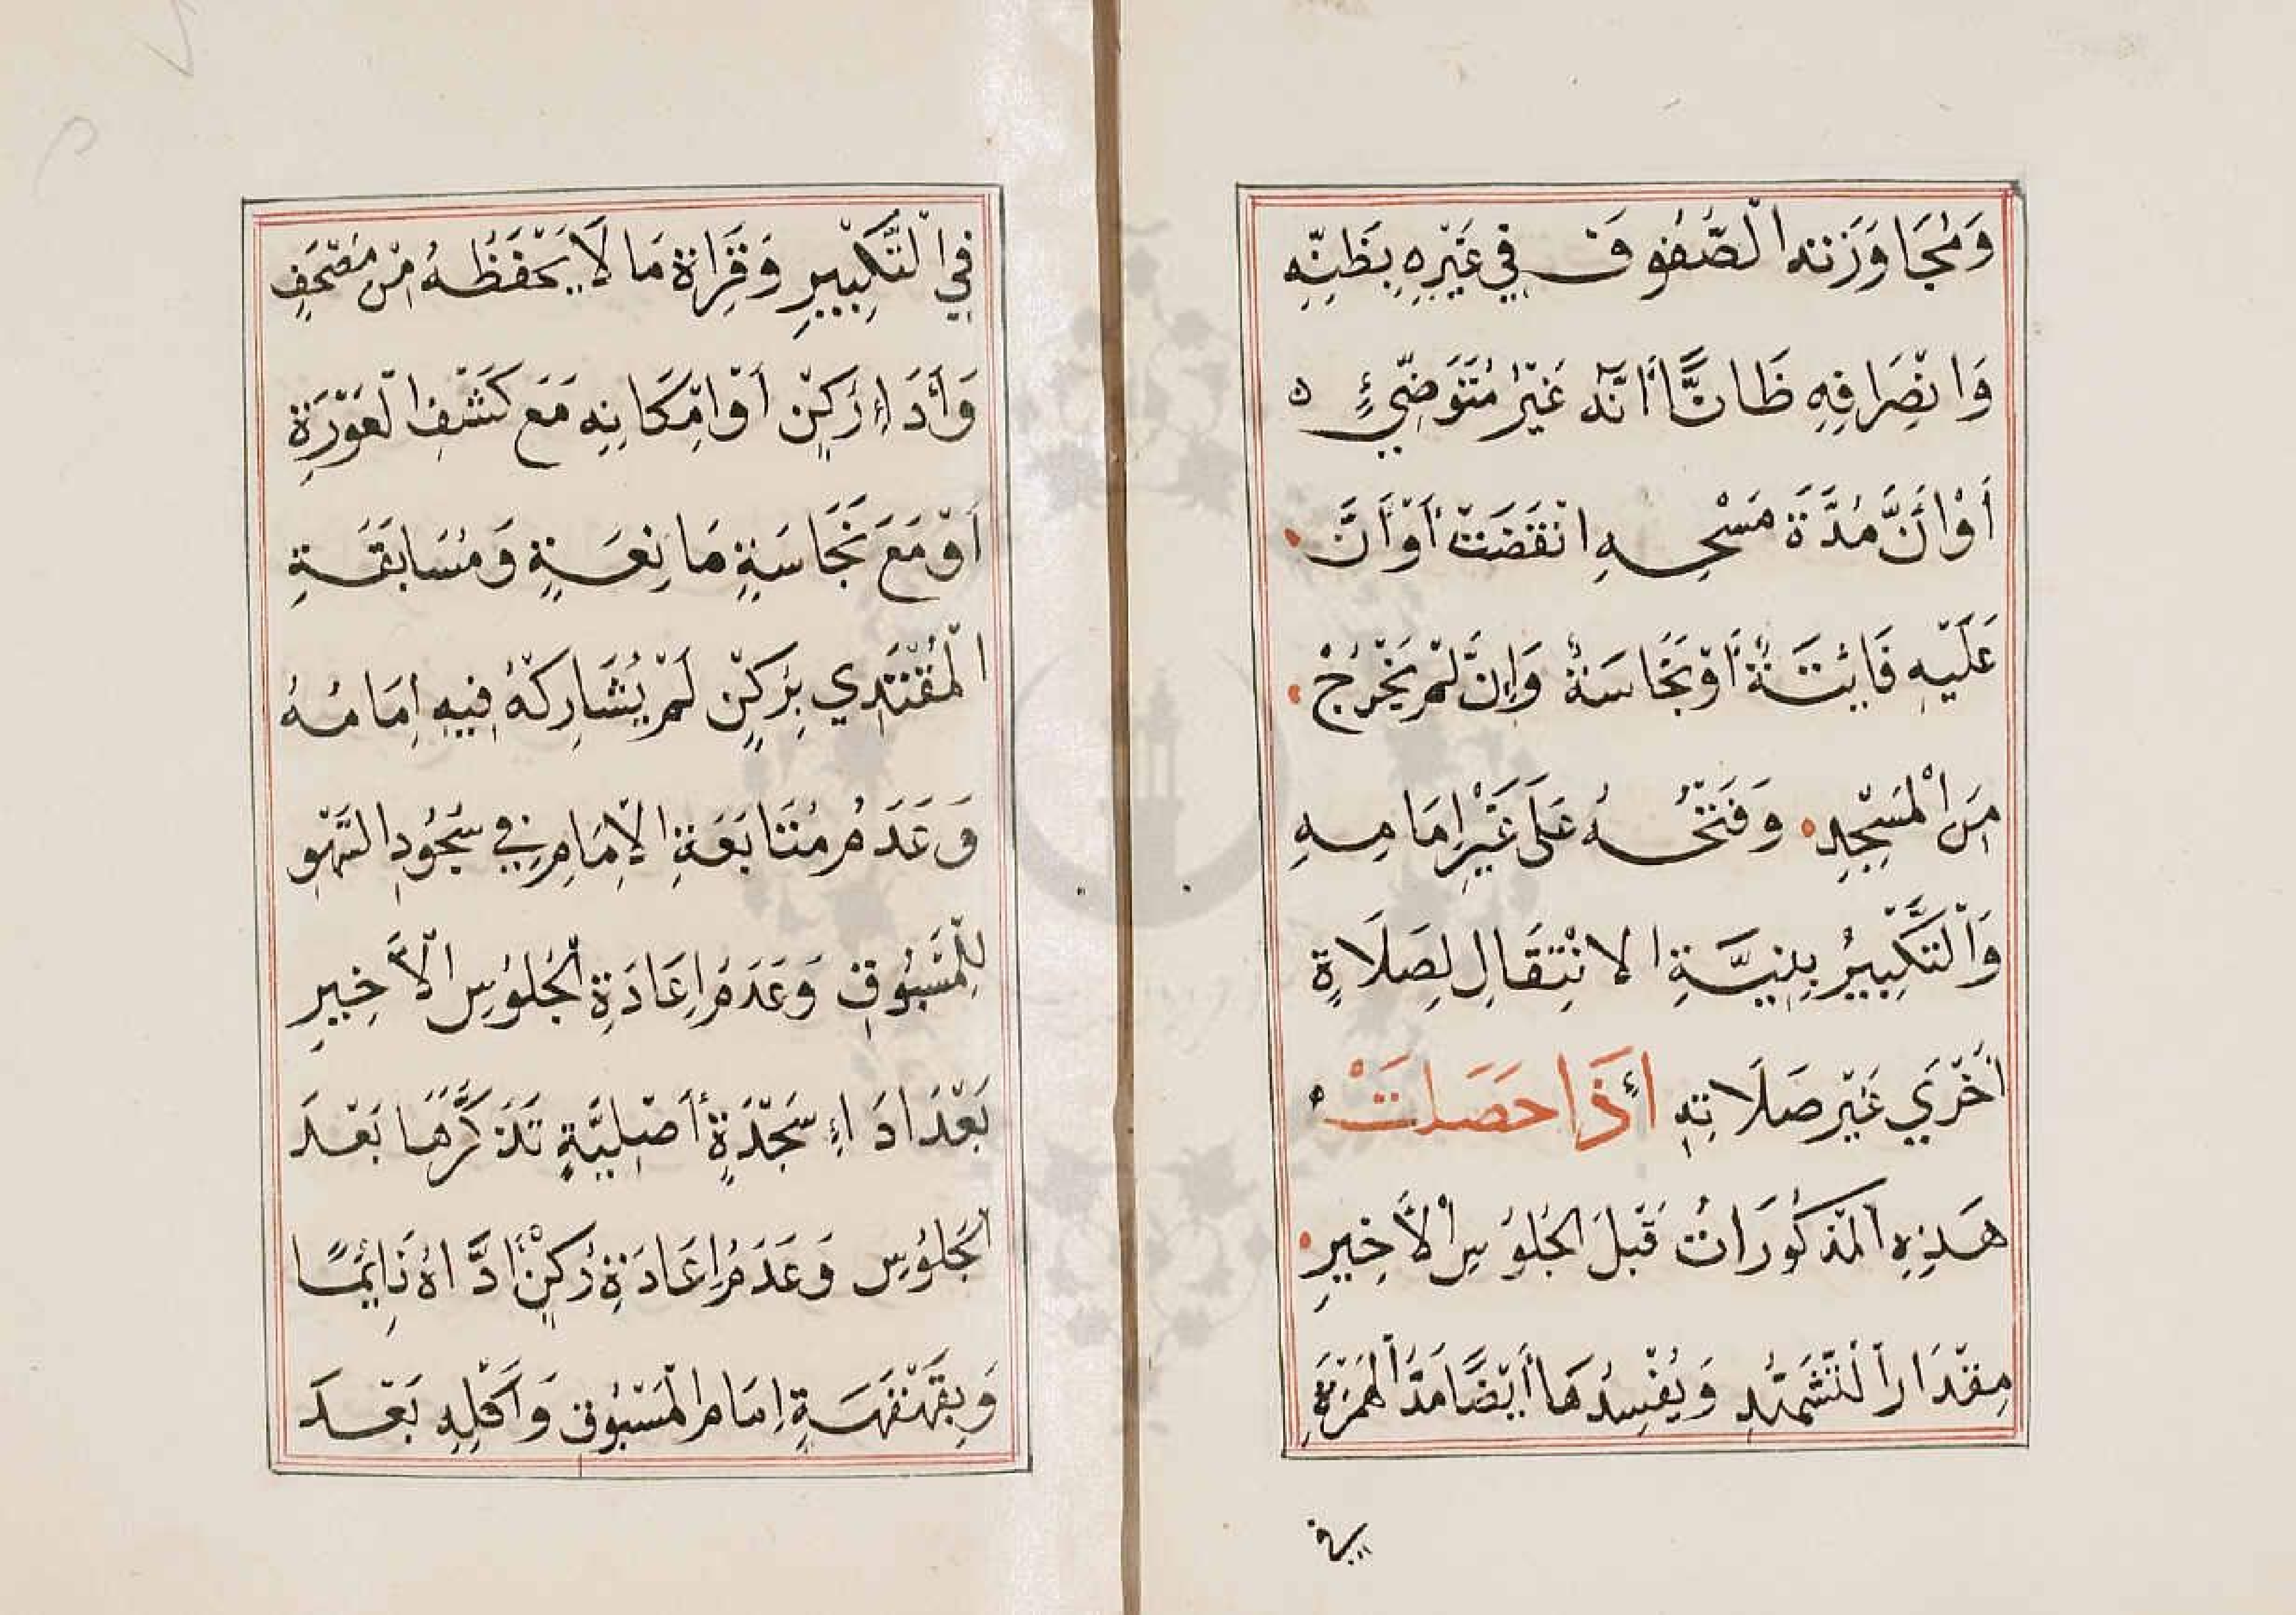 وَمُجَاوَزَتِهِ الصُّفُوفَ فِي غَيْرِهِ بِظَنِّهِ
وَانْصِرَافِهِ ظَانًّا أَنَّهُ غَيْرُ مُتَوَضِّئٍ
أَوْ أَنَّ مُدَّةَ مَسْحِهِ انْقَضَتْ أَوْ أَنَّ
عَلَيْهِ فَائِتَةٌ أَوْ نَجَاسَةٌ وَإِنْ لَمْ يَخْرُجْ
مِنَ الْمَسْجِدِ وَفَتْحُهُ عَلَى غَيْرِ إِمَامِهِ
وَالتَّكْبِيرُ بِنِيَّةِ الانْتِقَالِ لِصَلَاةٍ
أُخْرَي غَيْرِ صَلَاتِهِ اِذَا حَصَلَتْ
هَذِهِ الْمَذْكُورَاتُ قَبْلَ الْجُلُوسِ الْأَخِيرِ
مِقْدَارَ التَّشَهُّدِ وَيُفْسِدُهَا أَيْضًا مَدُّ الْهَمْزَةِ
في
فِي التَّكْبِيرِ وَقِرَاةُ مَا لَا يَحْفَظُهُ مِنْ مُصْحَفٍ
وَأَدَاءُ رُكْنٍ أَوْ إِمْكَانِهِ مَعَ كَشْفِ الْعَوْرَةِ
أَوْ مَعَ نَجَاسَةٍ مَانِعَةٍ وَمُسَابَقَةِ
الْمُقْتَدِي بِرُكْنٍ لَمْ يُشَارِكْهُ فِيهِ إِمَامُهُ
وَعَدَمُ مُتَابَعَةِ الْإِمَامِ فِي سُجُودِ السَّهْوِ
لِلْمَسْبُوقِ وَعَدَمُ إِعَادَةِ الْجُلُوسِ الْأَخِيرِ
بَعْدَ ادَاءِ سَجْدَةٍ أَصْلِيَّةٍ تَذَكَّرَهَا بَعْدَ
الْجُلُوسِ وَعَدَمُ إِعَادَةِ رُكْنٍ أَدَّاهُ نَائِمًا
وَبِقَهْقَهَةِ إِمَامِ الْمَسْبُوقِ وَأَكْلِهِ بَعْدَ